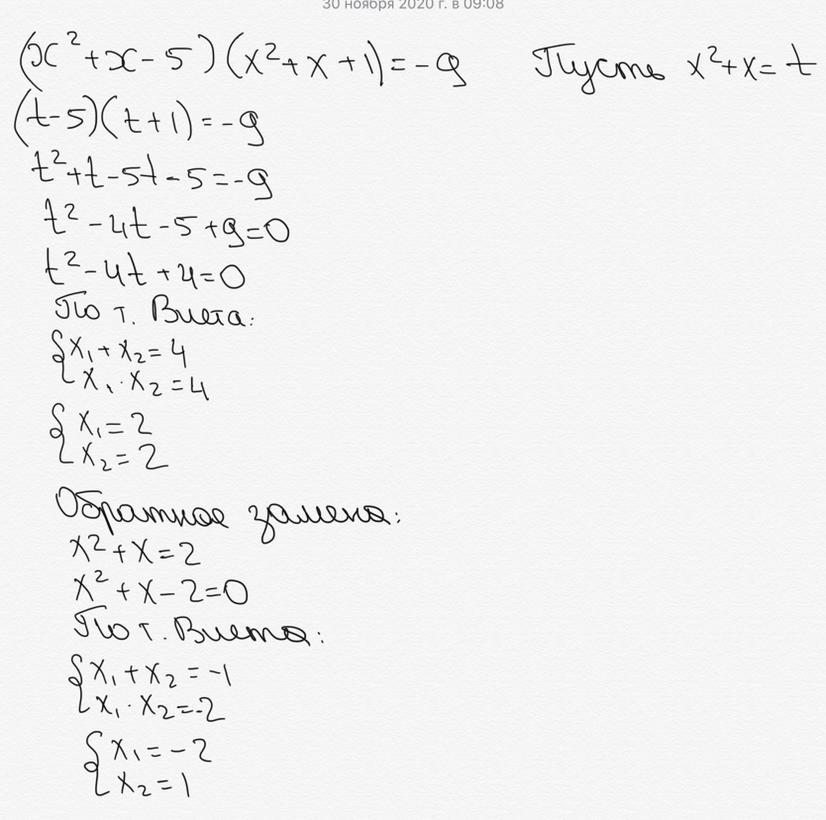 30 ноября 2020 г. в 09:08
(x²+x-5)(x²+x+1)=-9 Пусть x²+x=t
(t-5)(t+1)=-9
t²+t-5t-5=-9
t²-4t-5+9=0
t²-4t+4=0
По т. Виета:
{x₁+x₂=4
x₁·x₂=4
{x₁=2
x₂=2
Обратное замена:
x²+x=2
x²+x-2=0
По т. Виета:
{x₁+x₂=-1
x₁·x₂=-2
{x₁=-2
x₂=1